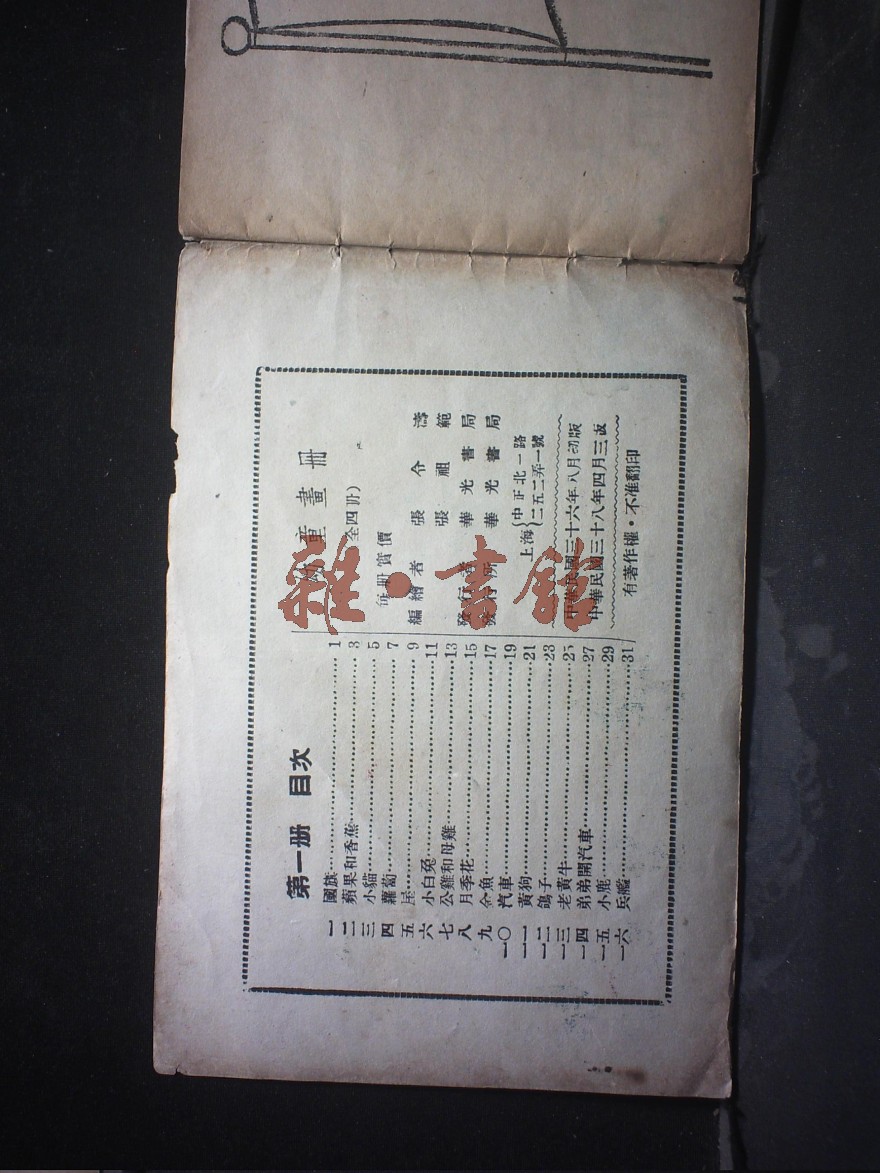 第一册　目次
一　國旗……1
二　蘋果和香蕉……3
三　小貓……5
四　蘿蔔……7
五　屋……9
六　小白兔……11
七　公雞和母雞……13
八　月季花……15
九　金魚……17
一〇　汽車……19
一一　黃狗……21
一二　鴿子……23
一三　老黃牛……25
一四　弟弟開汽車……27
一五　小鹿……29
一六　兵艦……31
幼童畫冊
(全四册)
每册實價
編繪者　張令濤
張祖範
發行者　華光書局
發行所　華光書局
上海　中正北一路
二五二弄一號
中華民國三十六年八月初版
中華民國三十八年四月三版
有著作權・不准翻印